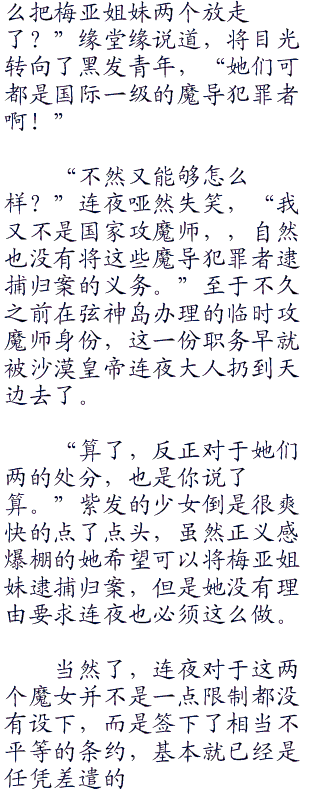 么把梅亚姐妹两个放走
了？”缘堂缘说道，将目光
转向了黑发青年，“她们可
都是国际一级的魔导犯罪者
啊！”
“不然又能够怎么
样？”连夜哑然失笑，“我
又不是国家攻魔师，，自然
也没有将这些魔导犯罪者逮
捕归案的义务。”至于不久
之前在弦神岛办理的临时攻
魔师身份，这一份职务早就
被沙漠皇帝连夜大人扔到天
边去了。
“算了，反正对于她们
两的处分，也是你说了
算。”紫发的少女倒是很爽
快的点了点头，虽然正义感
爆棚的她希望可以将梅亚姐
妹逮捕归案，但是她没有理
由要求连夜也必须这么做。
当然了，连夜对于这两
个魔女并不是一点限制都没
有设下，而是签下了相当不
平等的条约，基本就已经是
任凭差遣的